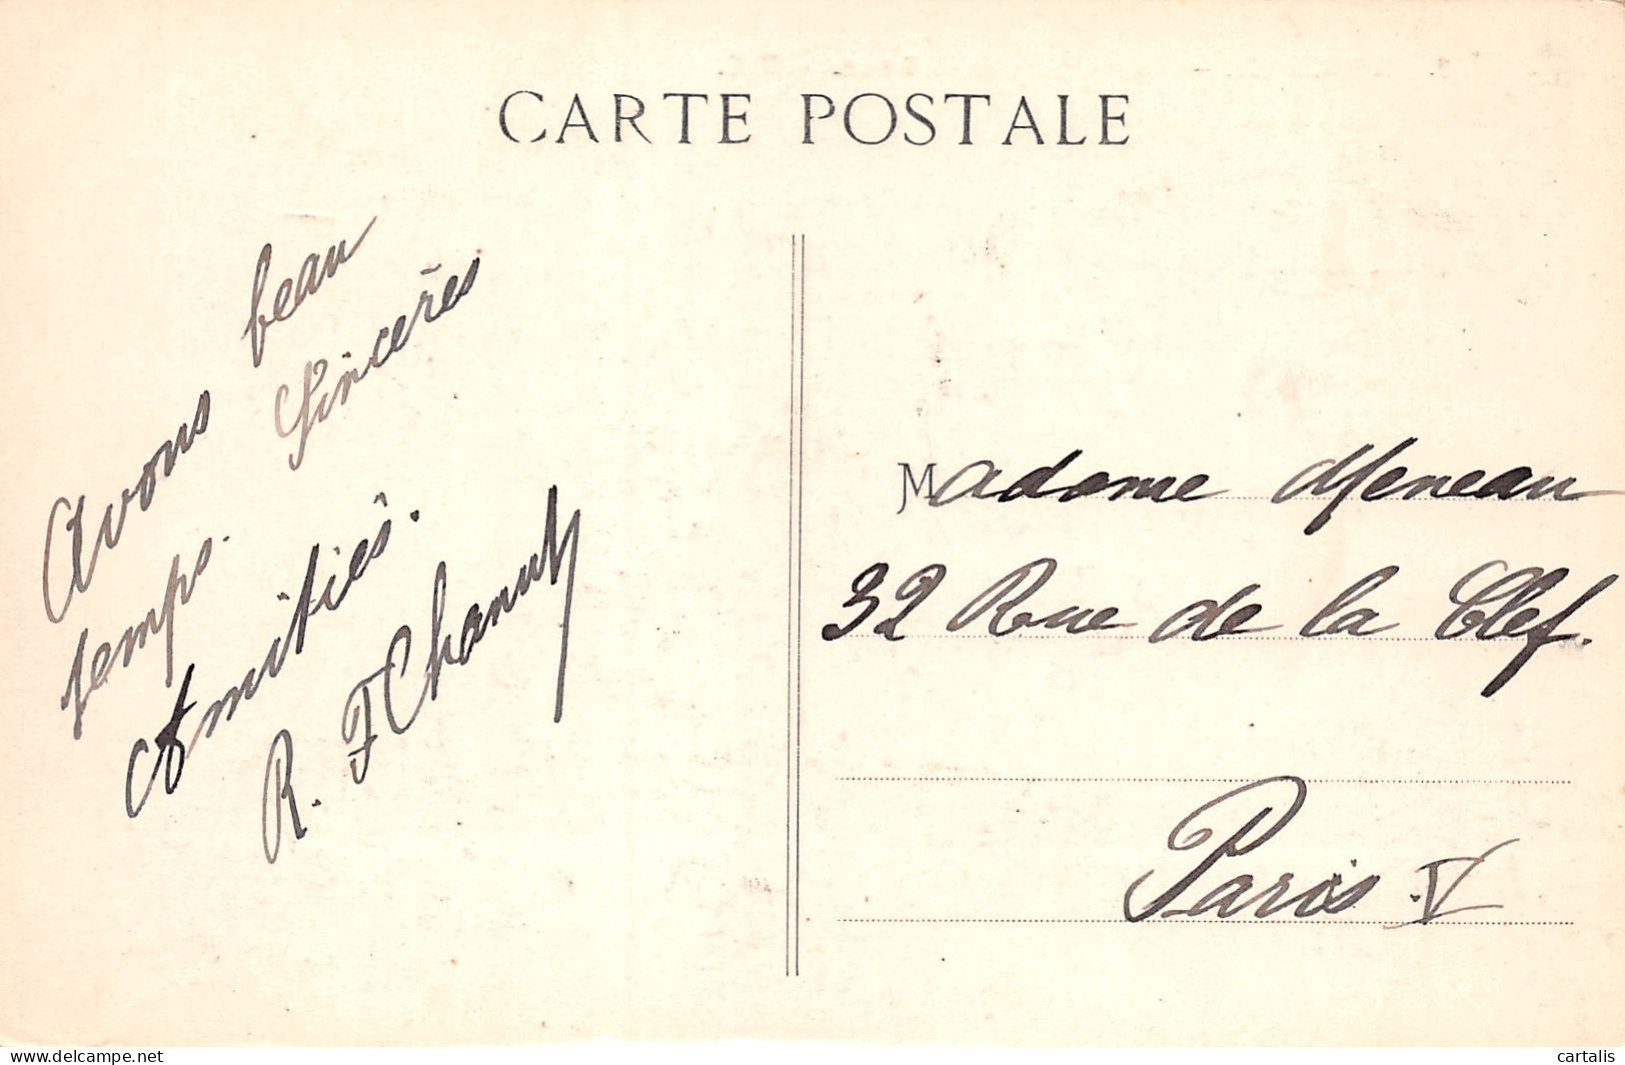 CARTE POSTALE
Avons beau
temps. Sincères
Amitiés.
R. F Chanut
Madame Meneau
32 Rue de la Clef.
Paris V
delcampe.net
cartalis